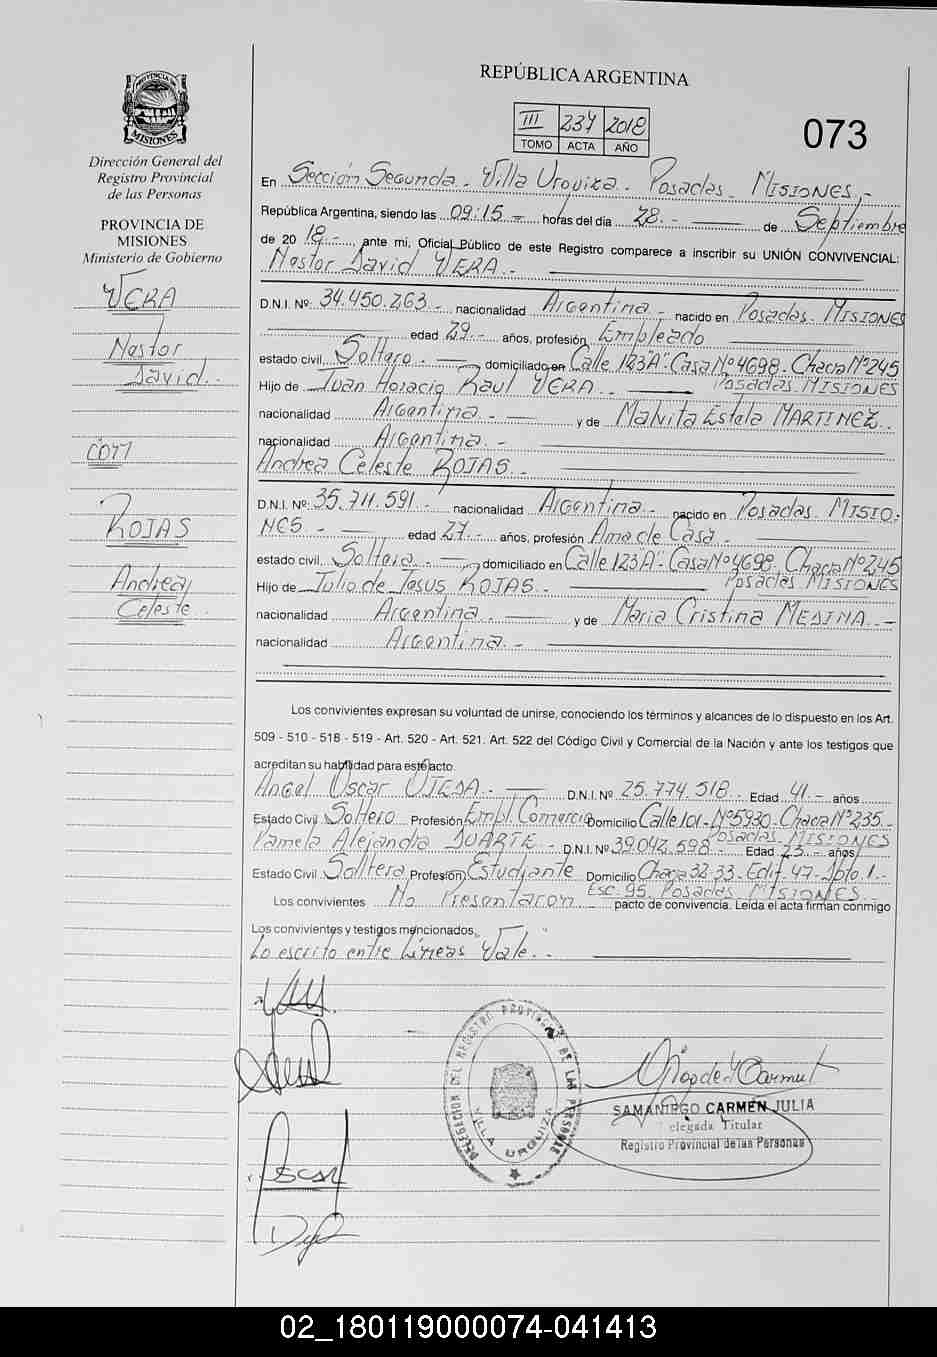 REPÚBLICA ARGENTINA
III 237 2018
TOMO ACTA AÑO
073
PROVINCIA DE MISIONES
Dirección General del
Registro Provincial
de las Personas
PROVINCIA DE
MISIONES
Ministerio de Gobierno
VERA
Nestor
David.
con
ROJAS
Andrea
Celeste
En Sección Segunda - Villa Urquiza - Posadas - MISIONES.-
República Argentina, siendo las 09:15 - horas del día 28.- de Septiembre
de 2018.-, ante mí, Oficial Público de este Registro comparece a inscribir su UNIÓN CONVIVENCIAL:
Nestor David VERA.-
D.N.I. Nº: 34.450.263.- nacionalidad Argentina.- nacido en Posadas. MISIONES
edad 29.- años, profesión Empleado
estado civil Soltero.- domiciliado en Calle 123"A"- Casa Nº 4698- Chacra Nº 245
Posadas MISIONES
Hijo de Juan Horacio Raul VERA.-
nacionalidad Argentina.- y de Malvita Estela MARTINEZ.
nacionalidad Argentina.-
Andrea Celeste ROJAS.-
D.N.I. Nº: 35.711.591.- nacionalidad Argentina.- nacido en Posadas. MISIO-
NES.- edad 27.- años, profesión Ama de Casa.
estado civil Soltera.- domiciliado en Calle 123"A"- Casa Nº 4698- Chacra Nº 245
Posadas MISIONES
Hijo de Julio de Jesus ROJAS.-
nacionalidad Argentina.- y de Maria Cristina MEDINA.-
nacionalidad Argentina.-
Los convivientes expresan su voluntad de unirse, conociendo los términos y alcances de lo dispuesto en los Art.
509 - 510 - 518 - 519 - Art. 520 - Art. 521. Art. 522 del Código Civil y Comercial de la Nación y ante los testigos que
acreditan su habilidad para este acto.
Angel Oscar OJEDA.- D.N.I. Nº 25.774.518. Edad 41.- años
Estado Civil Soltero Profesión Empl. Comercio Domicilio Calle 101- Nº 5930- Chacra Nº 235.-
Posadas MISIONES
Pamela Alejandra DUARTE.- D.N.I. Nº 39.042.598.- Edad 23.- años
Estado Civil Soltera Profesión Estudiante Domicilio Chacra 32-33- Edif. 47- Dpto. 1.-
Esc. 95. Posadas. MISIONES.-
Los convivientes No Presentaron - pacto de convivencia. Leída el acta firman conmigo
Los convivientes y testigos mencionados.
Lo escrito entre Líneas Vale.-
Oscar
DELEGACION DEL REGISTRO PROVINCIAL DE LAS PERSONAS
VILLA URQUIZA
SAMANIEGO CARMEN JULIA
elegada Titular
Registro Provincial de las Personas
02_180119000074-041413